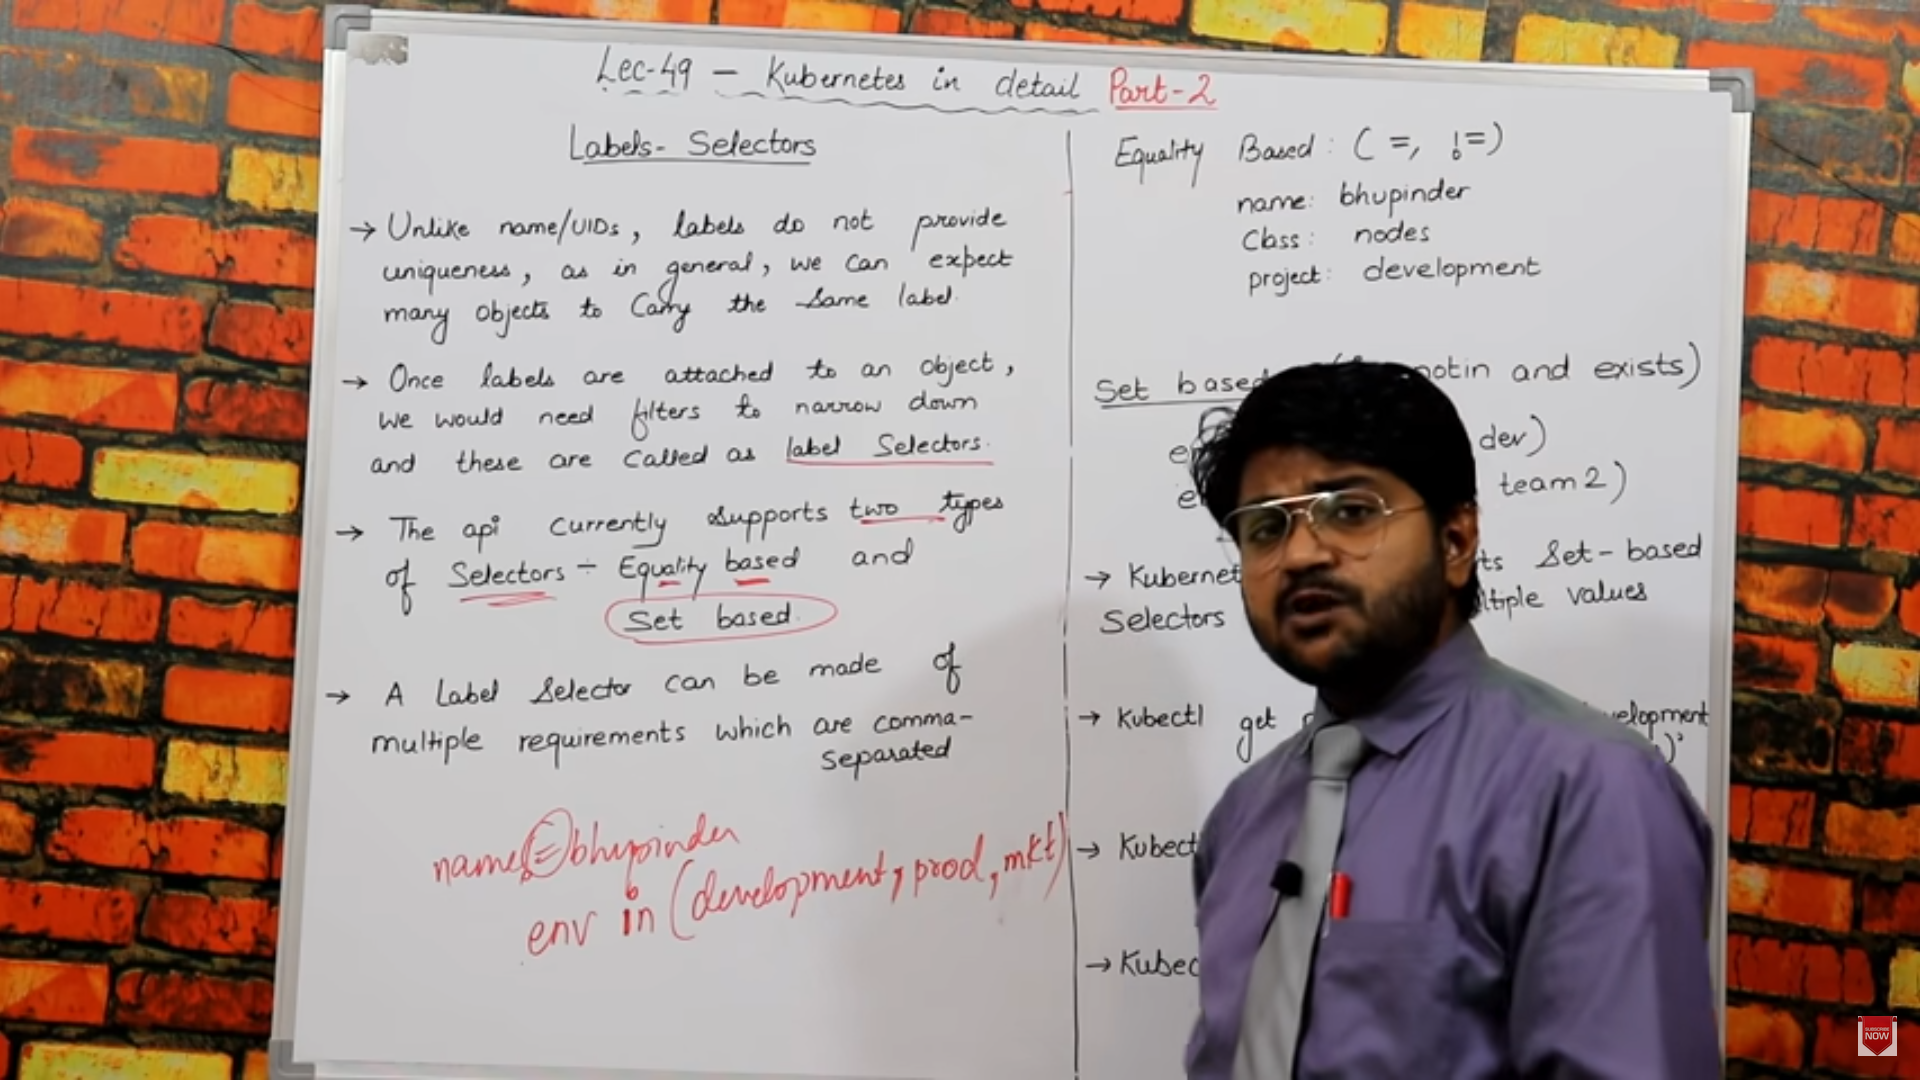 Lec-49 - Kubernetes in detail Part-2
Labels- Selectors
→ Unlike name/UIDs, labels do not provide
uniqueness, as in general, we can expect
many objects to Carry the Same label.
→ Once labels are attached to an object,
we would need filters to narrow down
and these are called as label Selectors.
→ The api currently supports two types
of Selectors ÷ Equality based and
Set based.
→ A Label Selector can be made of
multiple requirements which are comma-
separated
name!=bhupinder
env in (development, prod, mkt)
Equality Based: ( =, !=)
name: bhupinder
Class: nodes
project: development
Set based notin and exists)
dev)
team2)
→ Set-based
Selectors values
→ Kubectl get
→
→
SUBSCRIBE
NOW